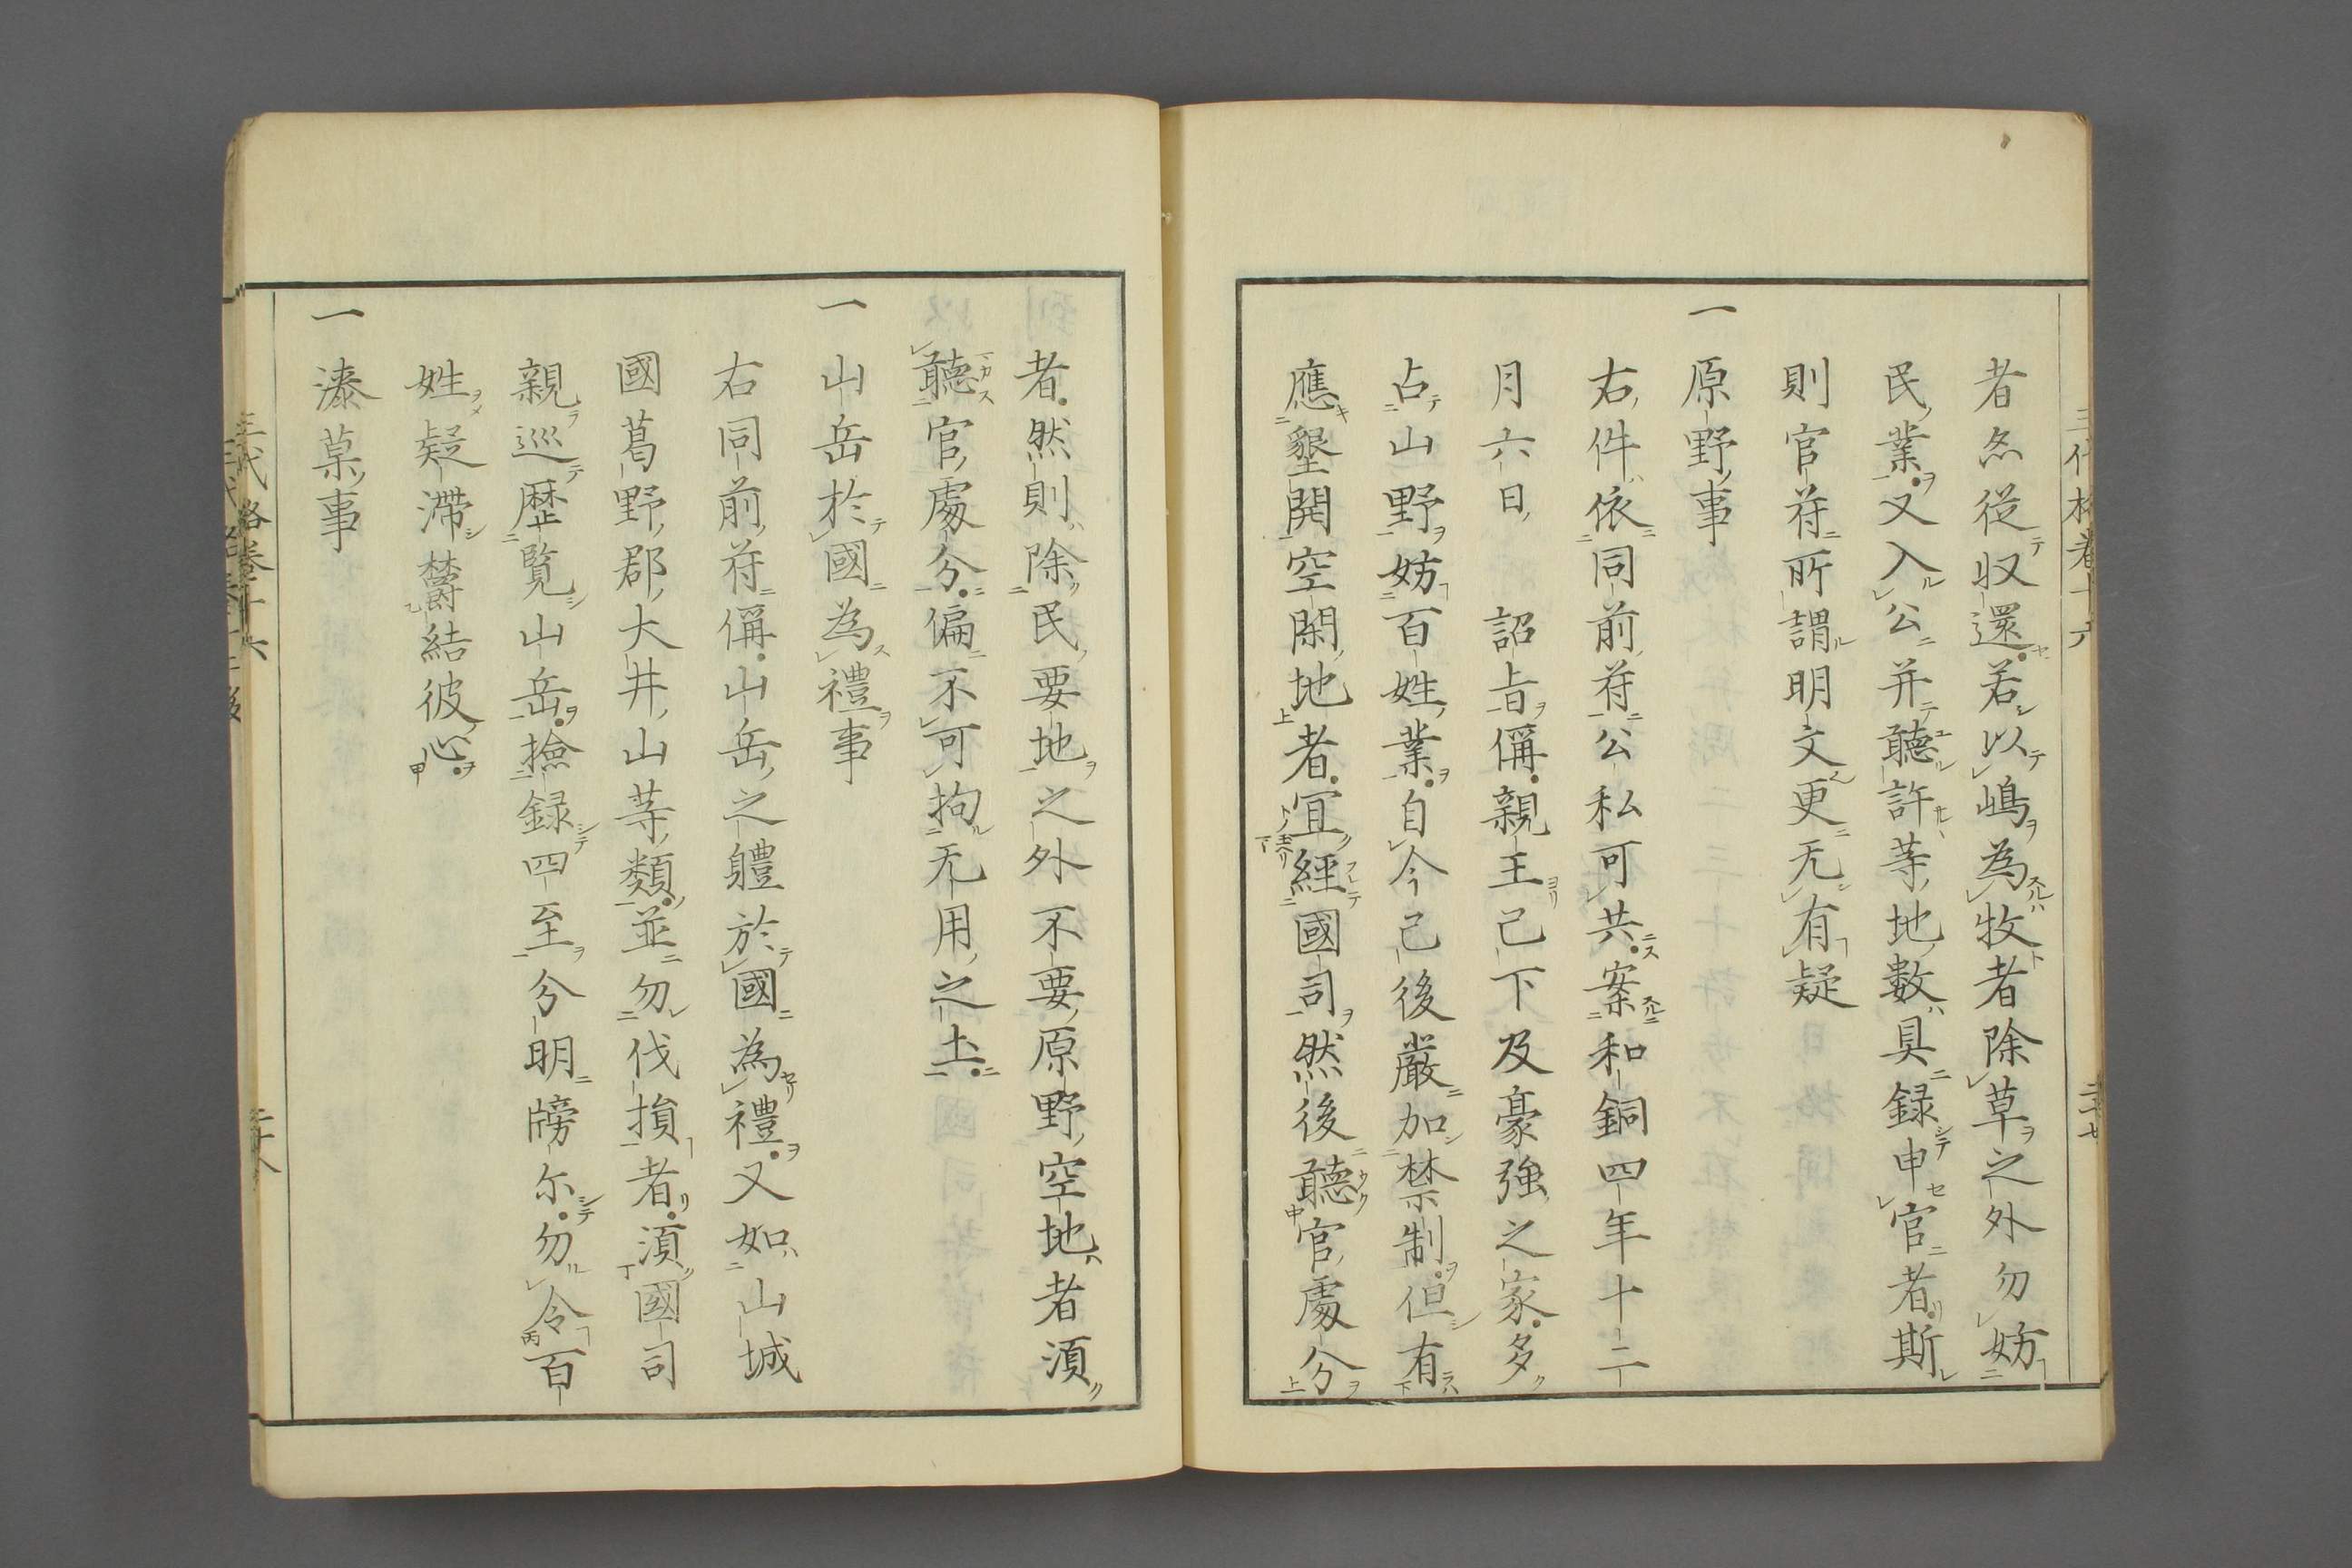 者亦従収還若以嶋為牧者除草之外勿妨
民業又入公并聴許等地数具録申官者斯
則官符所謂明文更无有疑
一原野事
右件依同前符公私可共案和銅四年十二
月六日 詔旨偁親王已下及豪強之家多
占山野妨百姓業自今已後厳加禁制但有
應墾開空閑地者宜經國司然後聴官處分
者然則除民要地之外不要原野空地者須
聴官處分偏不可拘无用之土
一山岳於國為禮事
右同前符偁山岳之軆於國為禮又如山城
國葛野郡大井山等類並勿伐損者須國司
親巡歴覧山岳撿録四至分明牓尓勿令百
姓疑滞欝結彼心
一漆菓事
三代格巻十六